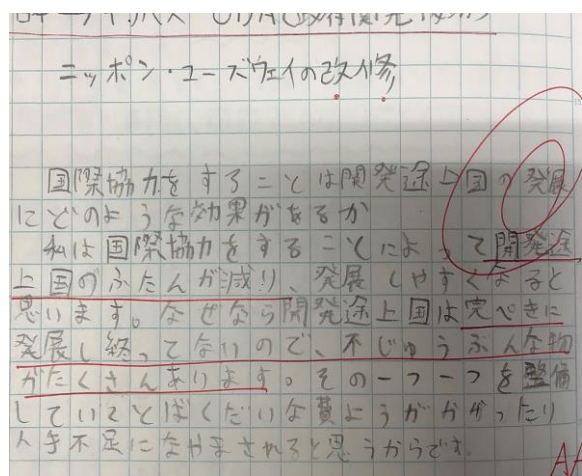 ODA(政府開発
ニッポン・ユーズウェイの改修
国際協力をすることは開発途上国の発展
にどのような効果があるか
私は国際協力をすることによって開発途
上国のふたんが減り、発展しやすくなると
思います。なぜなら開発途上国は完ぺきに
発展し終ってないので、不じゅうぶんな物
がたくさんあります。その一つ一つを整備
していくとばくだいな費ようがかかったり
人手不足になやまされると思うからです。